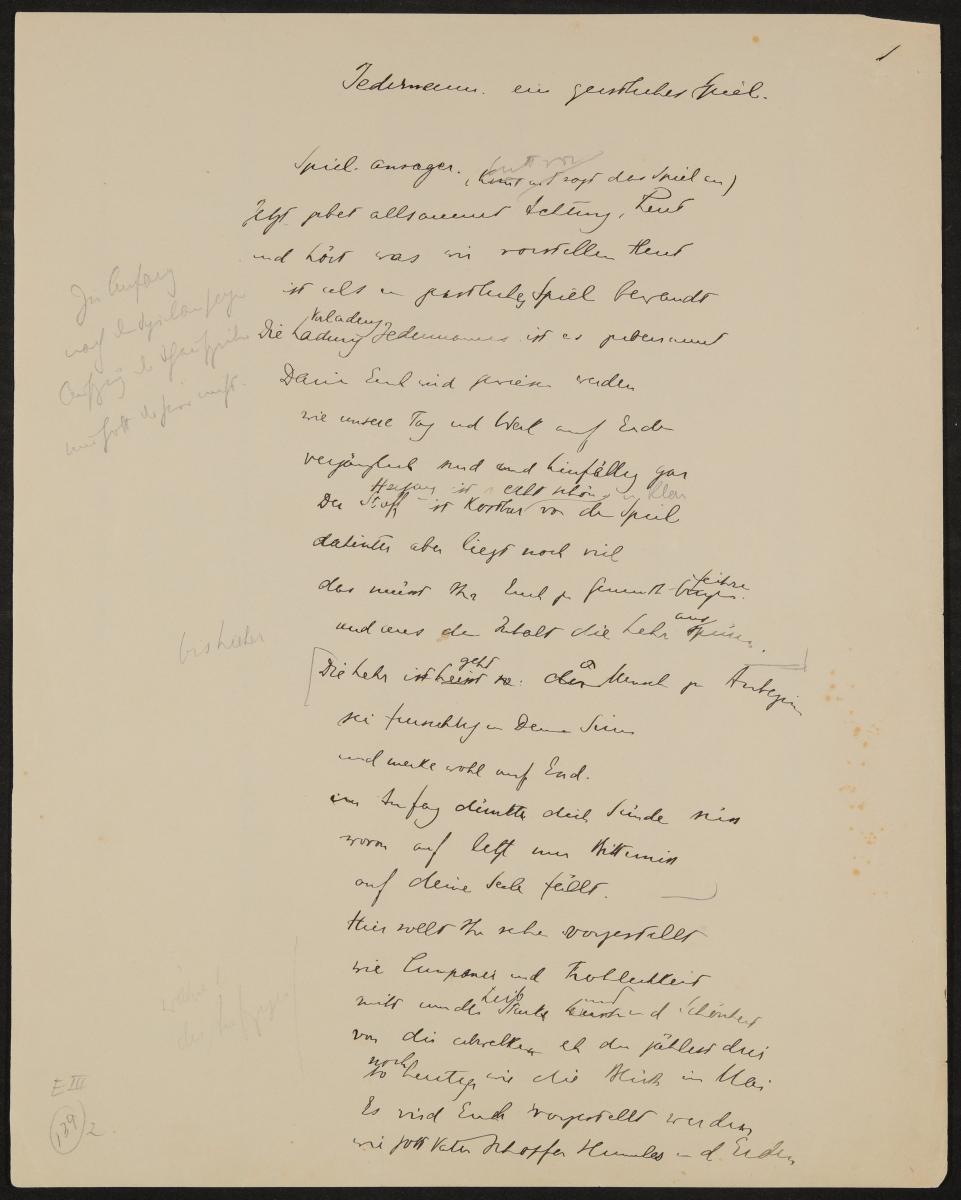 1
Jedermann. ein geistliches Spiel.
Spiel-ansager. (Kommt und sagt das Spiel an)
Jetzt gebet allsammt Achtung, Leut
und hört was wir vorstellen Heut
ist als ein geistliches Spiel bewandt
Vorladung
Die Ladung Jedermanns ist es zubenannt
Darin Euch wird gewiesen werden
wie unsere Tag und Werk auf Erden
vergänglich sind und hinfällig gar
Hergang ist recht schön u klar
Der Stoff ist kostbar von dem Spiel
dahinter aber liegt noch viel
das müsst Ihr Euch zu Gemüt führen
und aus dem Inhalt die Lehr ausspüren.
bis hierher
geht
Die Lehr ist heisst so: der Mensch zu Anbeginn
sei fürsichtig in Deinem Sinn
und merke wohl aufs End.
im Anfang dünkte dich Sünde süss
wovon auf letzt nur Bitternis
auf deine Seele fällt.
Hier sollt Ihr sehen vorgestellt
wie Cumpanei und Frohlichkeit
mitt Leibs Stärke Kunst und Schönheit
von dir abwelken
noch
so heutig wie die Blüh im Mai
Es wird Euch vorgestellt werden
wie Gott Vater Schöpfer Himmels u d. Erden
Im Anfang
nach
E III
139
2.